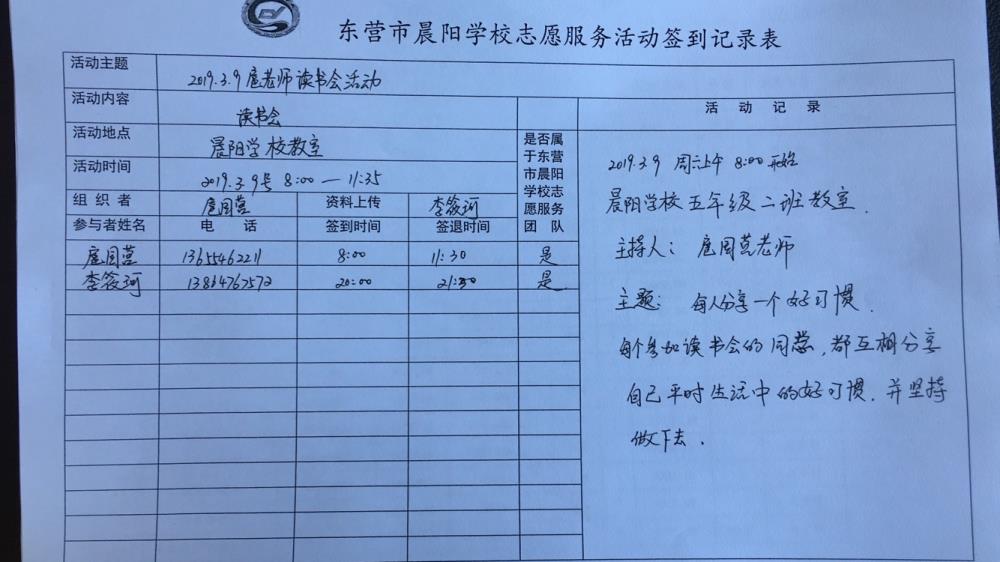 东营市晨阳学校志愿服务活动签到记录表
活动主题 2019.3.9扈老师读书会活动
活动内容 读书会
活动地点 晨阳学校教室
活动时间 2019.3.9号 8:00 — 11:35
组织者 资料上传 李筱珂
参与者姓名 电话 签到时间 签退时间
是否属
于东营
市晨阳
学校志
愿服务
团队
13655462211 8:00 11:30 是
李筱珂 20:00 是
活动记录
2019.3.9 周六上午 8:00开始
晨阳学校五年级二班教室.
主持人: 老师
主题: 每人分享一个好习惯.
每个参加读书会的同学,都互相分享
自己平时生活中的好习惯.并坚持
做下去.